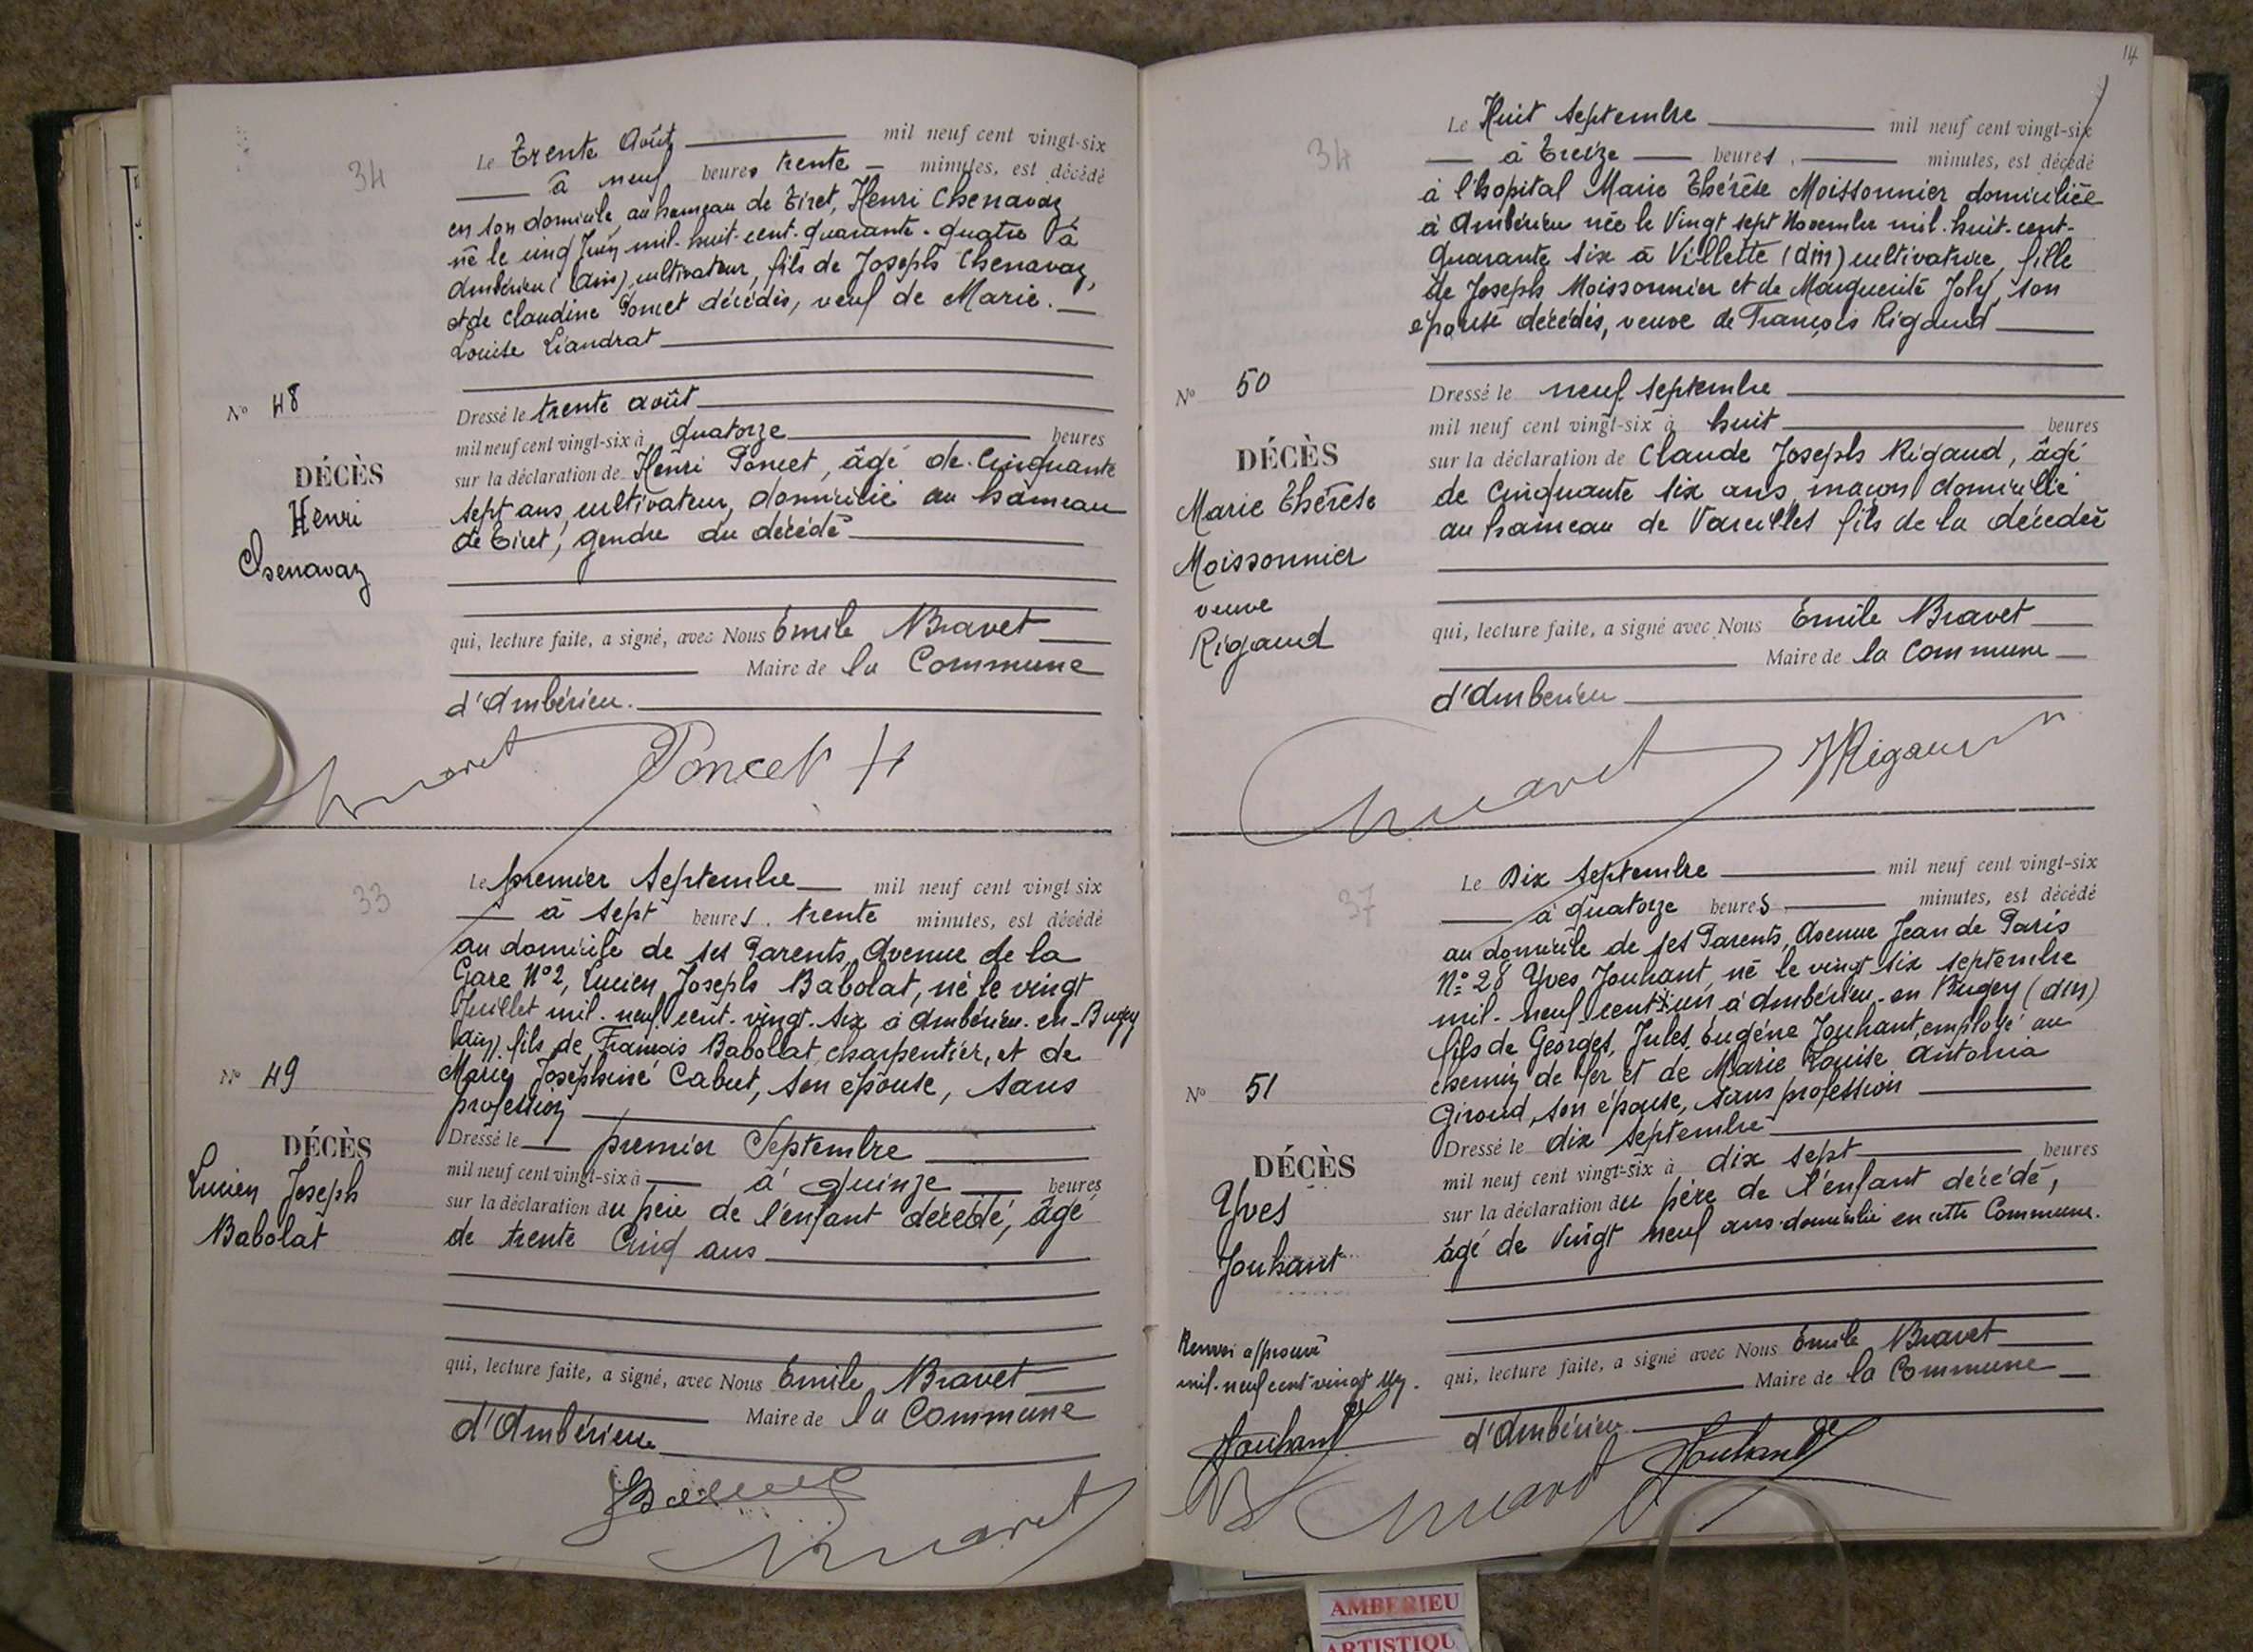 34
Le Trente Août mil neuf cent vingt-six
à neuf heures trente minutes, est décédé
en son domicile, au hameau de Tiret, Henri Chenavaz
né le cinq Juin mil-huit-cent-quarante-quatre à
Ambérieu (Ain), cultivateur, fils de Joseph Chenavaz,
et de Claudine Poncet décédés, veuf de Marie-
Louise Liandrat
No 48
DÉCÈS
Henri
Chenavaz
Dressé le trente août
mil neuf cent vingt-six à quatorze heures
sur la déclaration de Henri Poncet, âgé de cinquante
sept ans, cultivateur, domicilié au hameau
de Tiret, gendre du décédé
qui, lecture faite, a signé, avec Nous Emile Bravet
Maire de la Commune
d'Ambérieu.
Bravet Poncet H
33
Le premier Septembre mil neuf cent vingt six
à sept heures trente minutes, est décédé
au domicile de ses Parents, Avenue de la
Gare No 2, Lucien Joseph Babolat, né le vingt
Juillet mil-neuf-cent-vingt-six à Ambérieu-en-Bugey
(Ain) fils de François Babolat, charpentier, et de
Marie Joséphine Cabut, son épouse, sans
profession
No 49
DÉCÈS
Lucien Joseph
Babolat
Dressé le premier Septembre
mil neuf cent vingt-six à à quinze heures
sur la déclaration du père de l'enfant décédé, âgé
de trente Cinq ans
qui, lecture faite, a signé, avec Nous Emile Bravet
Maire de la Commune
d'Ambérieu
Bravet
14
34
Le Huit Septembre mil neuf cent vingt-six
à Treize heures minutes, est décédé
à l'hopital Marie Thérèse Moissonnier domiciliée
à Ambérieu née le Vingt sept Novembre mil-huit-cent-
quarante six à Villette (Ain) cultivatrice, fille
de Joseph Moissonnier et de Marguerite Joly, son
épouse décédés, veuve de François Rigaud
No 50
DÉCÈS
Marie Thérèse
Moissonnier
veuve
Rigaud
Dressé le neuf septembre
mil neuf cent vingt-six à huit heures
sur la déclaration de Claude Joseph Rigaud, âgé
de cinquante six ans, maçon domicilié
au hameau de Vareilles fils de la décédée
qui, lecture faite, a signé avec Nous Emile Bravet
Maire de la Commune
d'Ambérieu
Bravet Rigaud
37
Le Dix Septembre mil neuf cent vingt-six
à quatorze heures minutes, est décédé
au domicile de ses Parents, Avenue Jean de Paris
No 28 Yves Jouhant, né le vingt six septembre
mil-neuf cent x un à Ambérieu-en Bugey (Ain)
fils de Georges, Jules, Eugène Jouhant, employé au
chemin de fer et de Marie Louise Antonia
Giroud, son épouse, sans profession
No 51
DÉCÈS
Yves
Jouhant
Dressé le dix septembre
mil neuf cent vingt-six à dix sept heures
sur la déclaration du père de l'enfant décédé,
âgé de Vingt neuf ans domicilié en cette Commune.
Renvoi approuvé
mil-neuf cent vingt un.
Jouhant
qui, lecture faite, a signé avec Nous Emile Bravet
Maire de la Commune
d'Ambérieu
Bravet Jouhant
AMBERIEU
ARTISTIQU